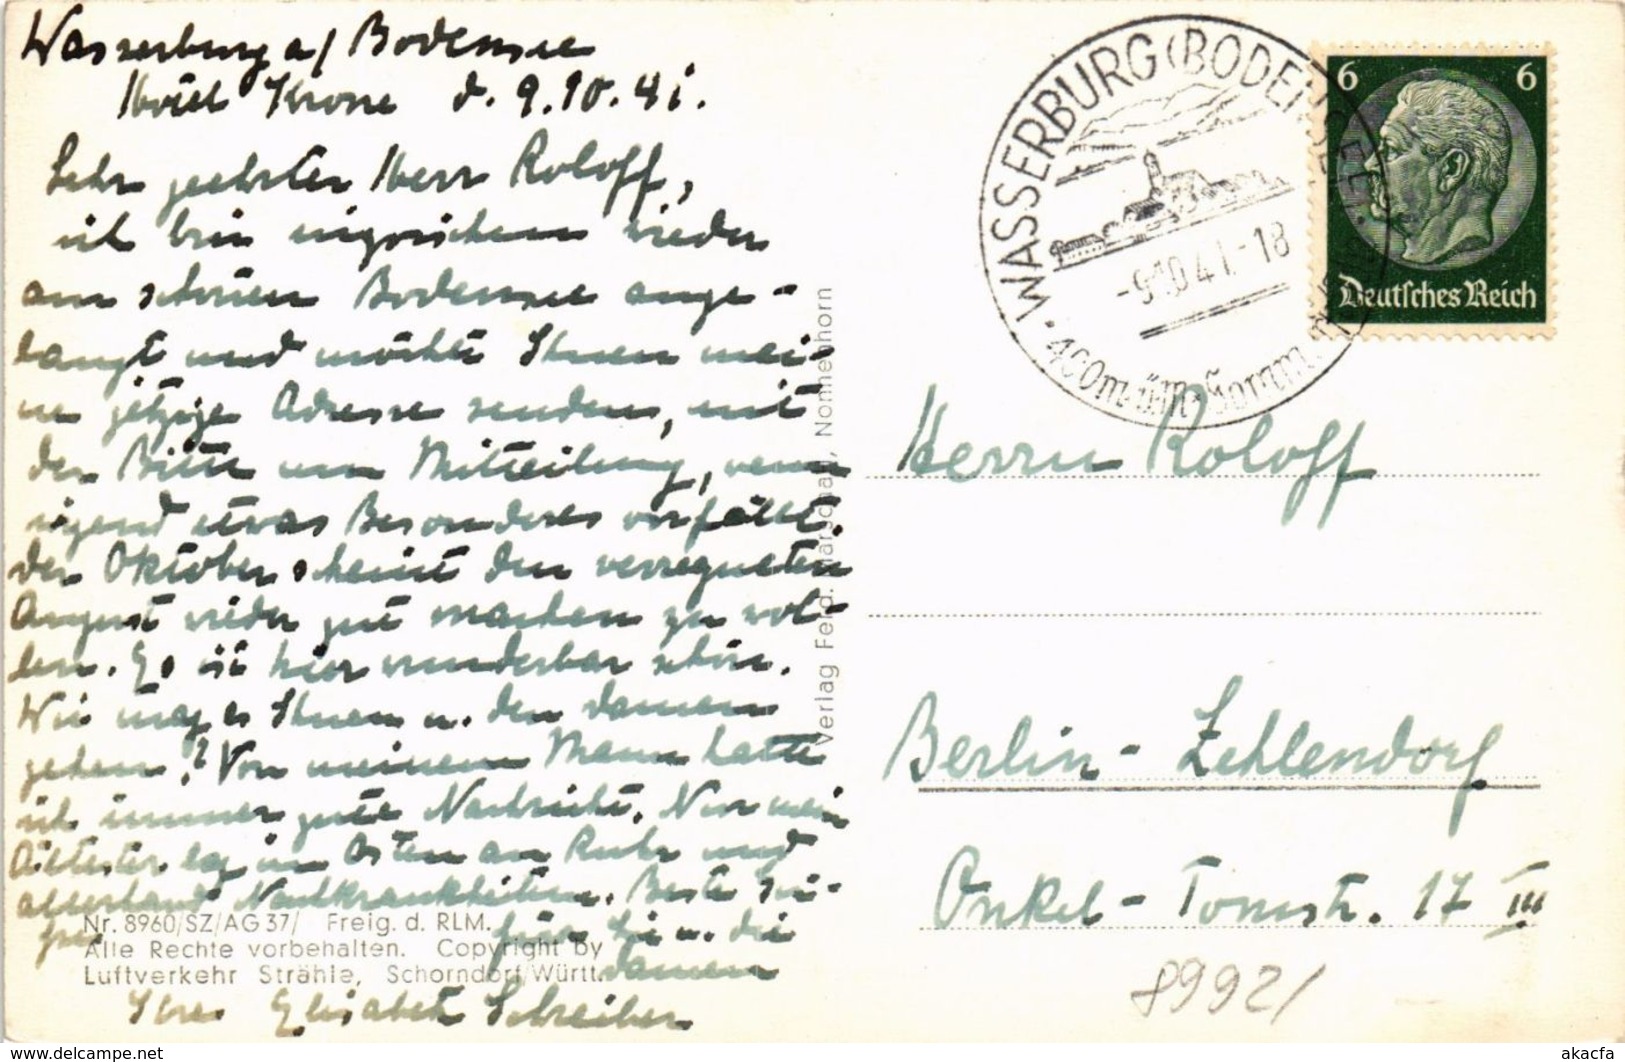 Wasserburg a/ Bodensee
Hotel Krone d. 9.10.41.
Sehr geehrter Herr Roloff,
ich bin inzwischen wieder
am schönen Bodensee ange-
langt und möchte Ihnen mei-
ne jetzige Adresse senden, mit
der Bitte um Mitteilung, wenn
irgend etwas Besonderes vorfällt.
Der Oktober scheint den verregneten
August wieder gut machen zu wol-
len. Es ist hier wunderbar schön.
Wie mag es Ihnen u. den Damen
gehen? Von meinem Mann hatte
ich immer gute Nachricht. Nur mein
Ältester lag im Osten an Ruhr und
allerhand Nachkrankheiten. Beste Grü-
für Sie u. die
Damen
Ihre Elisabeth Schreiber
Nr. 8960/SZ/AG 37/ Freig. d. RLM.
Alle Rechte vorbehalten. Copyright by
Luftverkehr Strähle, Schorndorf/Württ.
Verlag Ferd. Marschall, Nonnenhorn
WASSERBURG (BODENSEE)
-9.10.41.-18
400m ü.M.
6 6
Deutsches Reich
Herrn Roloff
Berlin-Zehlendorf
Onkel-Tomstr. 17 III
89921
www.delcampe.net
akacfa